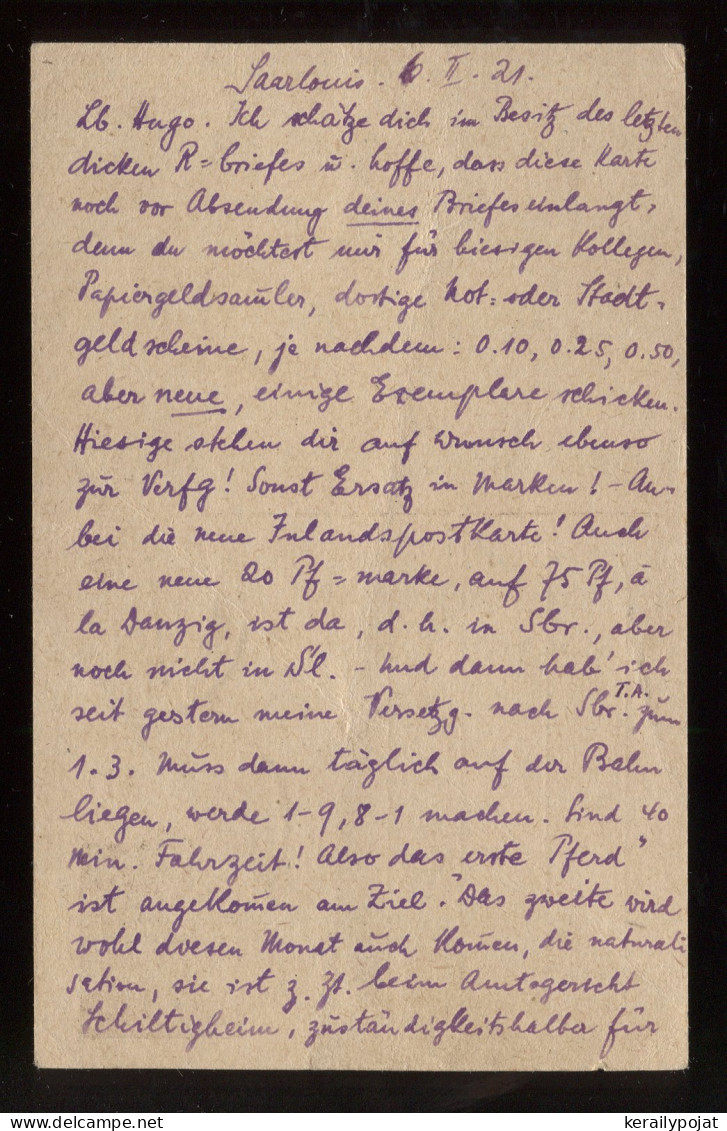 Saarlouis. 6. II. 21.
Lb. Hugo. Ich schätze dich im Besitz des letzten
dicken R=briefes u. hoffe, dass diese Karte
noch vor Absendung deines Briefes einlangt,
denn du möchtest mir für hiesigen Kollegen,
Papiergeldsam̄ler, dortige Not= oder Stadt-
geldscheine, je nachdem: 0.10, 0.25, 0.50,
aber neue, einige Exemplare schicken.
Hiesige stehen dir auf Wunsch ebenso
zur Verfg! Sonst Ersatz in Marken! - An-
bei die neue Inlandspostkarte! Auch
eine neue 20 Pf=marke, auf 75 Pf, à
la Danzig, ist da, d. h. in Sbr., aber
noch nicht in Sl. - Und dann hab' ich
seit gestern meine Versetzg. nach Sbr. T.A. zum
1.3. Muss dann täglich auf der Bahn
liegen, werde 1-9, 8-1 machen. Sind 40
Min. Fahrzeit! Also das erste Pferd"
ist angekom̄en am Ziel. "Das zweite wird
wohl diesen Monat auch kom̄en, die naturali
sation, sie ist z. Zt. beim Amtsgericht
Schiltigheim, zuständigkeitshalber für
kerailypojat.com